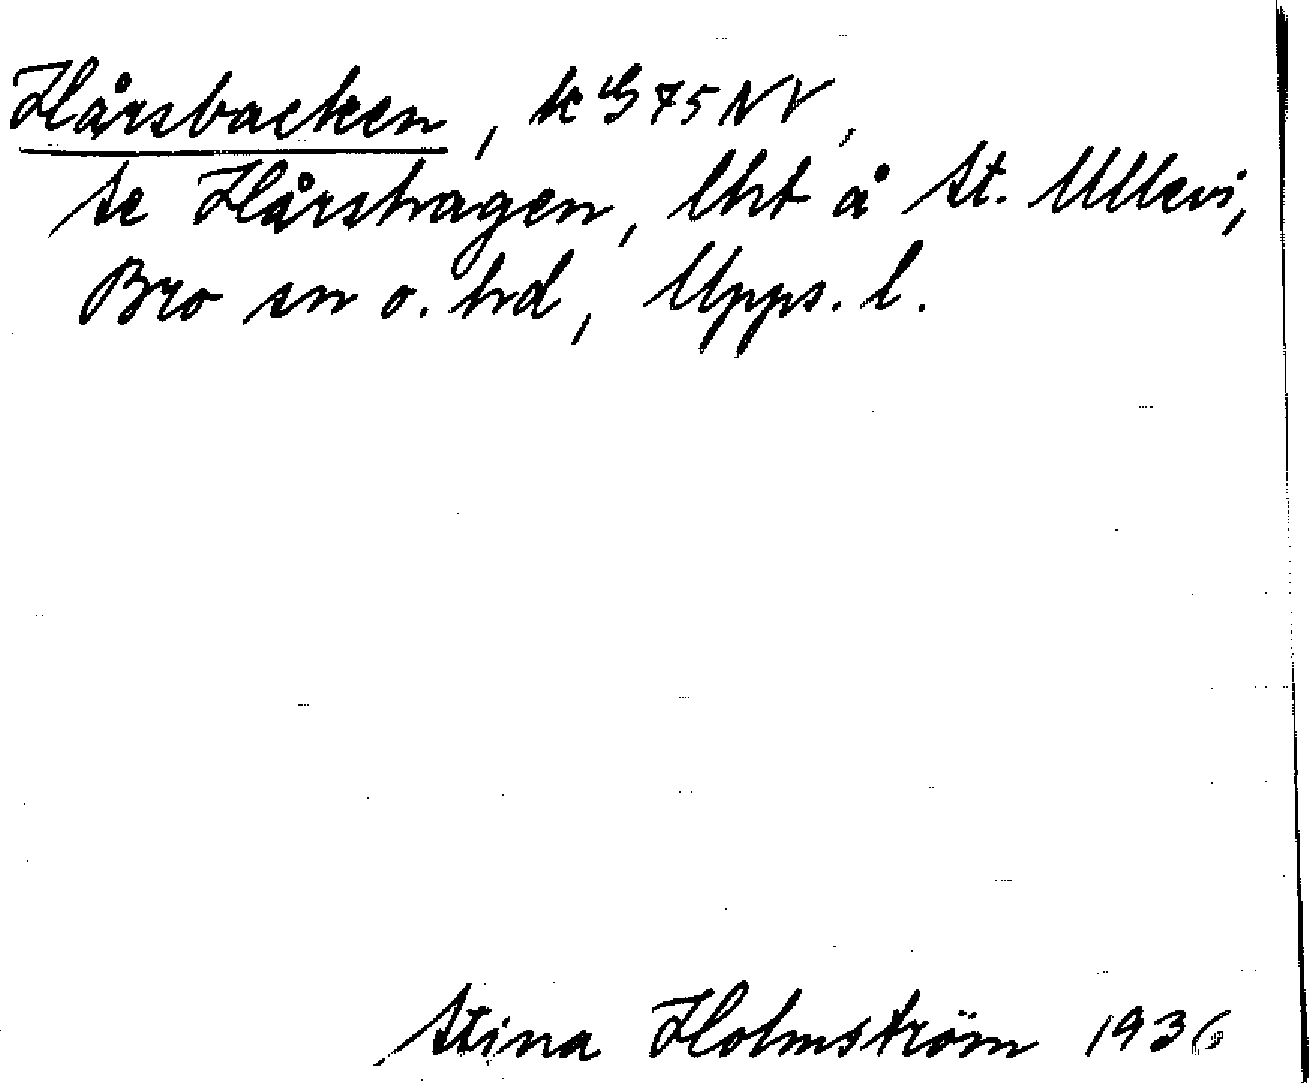 Hårsbacken, k G 75 NV,
se Hårshagen, lht å St. Ullevi,
Bro sn o. hd, Upps. l.
Stina Holmström 1936